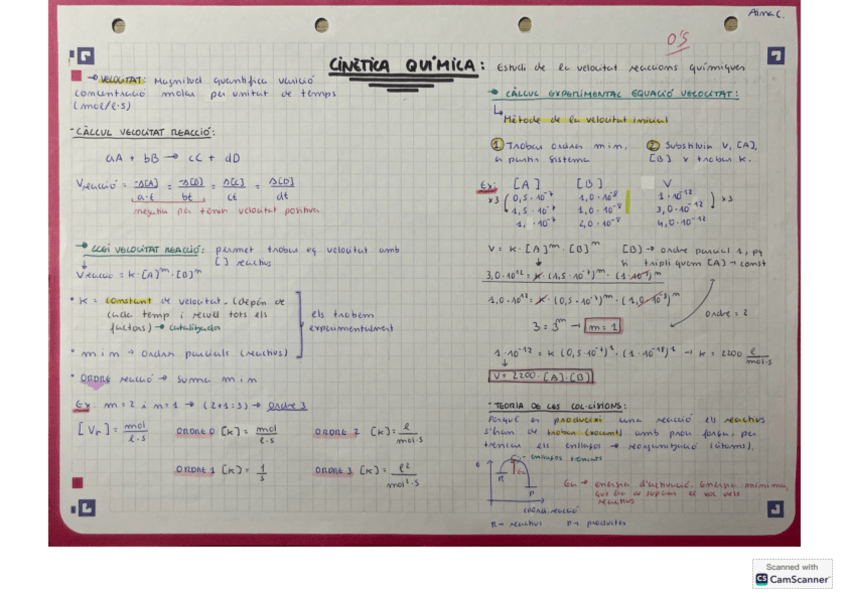 Aina C.
0'5
CINÈTICA QUÍMICA: Estudi de la velocitat reaccions químiques
→ VELOCITAT: Magnitud quantifica varició
concentració molar per unitat de temps
(mol/l·s)
- CÀLCUL VELOCITAT REACCIÓ:
aA + bB → cC + dD
Vreacció = -Δ[A] / a·t = -Δ[B] / bt = Δ[C] / ct = Δ[D] / dt
negatiu per tenir velocitat positiva
→ LLEI VELOCITAT REACCIÓ: permet trobar eq velocitat amb
[ ] reactius
Vreacció = k·[A]^m·[B]^n
• K = constant de velocitat. (depèn de
cada temp i recull tots els
factors) → catalitzador
• m i n → ordres parcials (reactius)
els trobem
experimentalment
• ORDRE reacció → suma m i n
Ex: m=2 i n=1 → (2+1=3) → ordre 3
[Vr] = mol / l·s
ORDRE 0 [K] = mol / l·s
ORDRE 2 [K] = l / mol·s
ORDRE 1 [K] = 1 / s
ORDRE 3 [K] = l² / mol²·s
→ CÀLCUL EXPERIMENTAL EQUACIÓ VELOCITAT:
Mètode de la velocitat inicial
① Trobar ordres m i n,
a partir sistema
② Substituir V, [A],
[B] i trobar K.
Ex: [A] [B] V
x3 ( 0,5·10⁻⁷ 1,0·10⁻⁸ 1·10⁻¹² ) x3
1,5·10⁻⁷ 1,0·10⁻⁸ 3,0·10⁻¹²
2,0·10⁻⁸ 4,0·10⁻¹²
V = K·[A]^m·[B]^m
[B] → ordre parcial 1, pq
si tripliquem [A] → const
3 = 3^m → m=1
ordre = 2
K = 2200 l / mol·s
V = 2200·[A]·[B]
- TEORIA DE LES COL·LISIONS:
Perquè es produeixi una reacció els reactius
s'han de trobar (xocant) amb prou força, per
trencar els enllaços → reorganització (àtoms).
enllaços trencats
R
P
Ea
coord. reacció
Ea → energia d'activació. Energia mínima,
que ha de superar el xoc dels
reactius
R → reactius P → productes
Scanned with
CS CamScanner